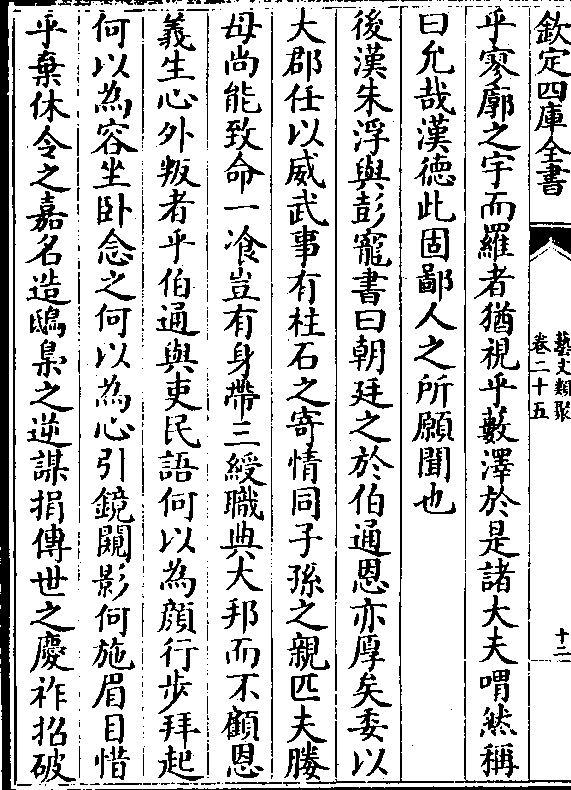 欽定四庫全書
藝文類聚
卷二十五
十二
乎寥廓之宇而羅者猶視乎藪澤於是諸大夫喟然稱
曰允哉漢德此固鄙人之所願聞也
後漢朱浮與彭寵書曰朝廷之於伯通恩亦厚矣委以
大郡任以威武事有柱石之寄情同子孫之親匹夫媵
母尚能致命一飡豈有身帶三綬職典大邦而不顧恩
義生心外叛者乎伯通與吏民語何以為顔行步拜起
何以為容坐卧念之何以為心引鏡闚影何施眉目惜
乎棄休令之嘉名造鴟梟之逆謀捐傳世之慶祚招破